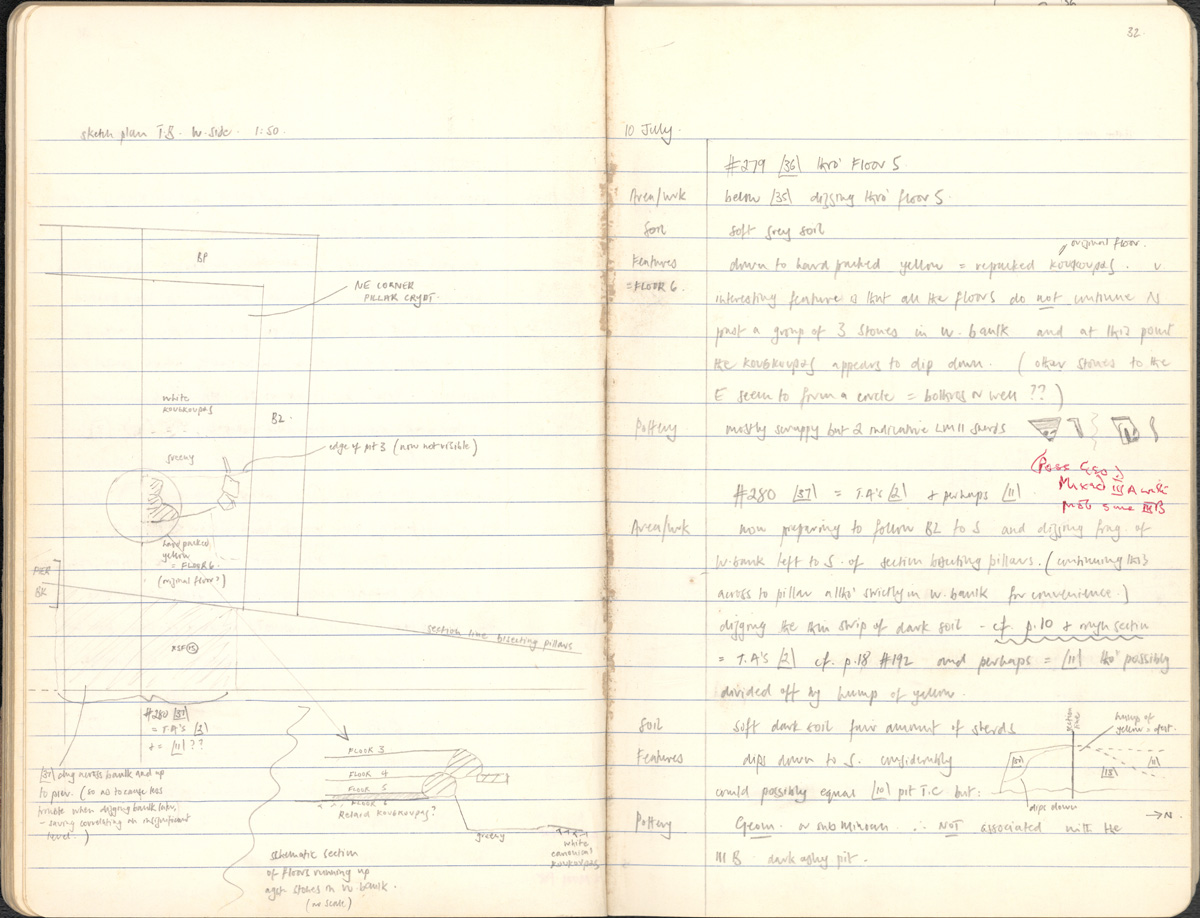 sketch plan T.B. W. side. 1:50.
BP
NE CORNER
PILLAR CRYPT.
white
kouskouras
B2.
edge of pit 3 (now not visible)
greeny
hard packed
yellow
= FLOOR 6
(original floor?)
PIER
BK
section line bisecting pillars
#280 [37]
= T.A's [2]
& = [11] ??
[37] dug across baulk and up
to prev. (so as to cause less
trouble when digging baulk later,
- saving correlating an insignificant
level.)
FLOOR 3
FLOOR 4
FLOOR 5
FLOOR 6
kouskouras?
greeny
white
canonical
kouskouras
schematic section
of floors running up
agst stones in W baulk.
(no scale)
32
10 July.
#279 [36] thro' Floor 5
Area/wrk below [35] digging thro' floor 5
Soil soft grey soil
original floor.
Features down to hard packed yellow = repacked kouskouras. v.
= FLOOR 6. interesting feature is that all the floors do not continue
past a group of 3 stones in W. baulk and at this point
the kouskouras appears to dip down. (other stones to the
E seem to form a circle = bothros or well ??)
Pottery mostly scrappy but 2 indicative LM II sherds
(Poss
Mixed III A with
prob some III B
#280 [37] = T.A's [2] & perhaps [11]
Area/wrk now preparing to follow B2 to S and digging frag. of
W. baulk left to S. of section bisecting pillars. (continuing this
across to pillar altho' strictly in W. baulk for convenience.)
digging the thin strip of dark soil - cf. p.10 & rough section
= T.A's [2] cf. p.18 #192 and perhaps = [11] tho' possibly
divided off by hump of yellow.
Soil soft dark soil fair amount of sherds
Features dips down to S. considerably
could possibly equal [10] pit T.C but:
section
hump of
yellow
[10]
[11]
[18]
dips down
→N.
Pottery Geom. or subminoan ∴ NOT associated with the
III B dark ashy pit.